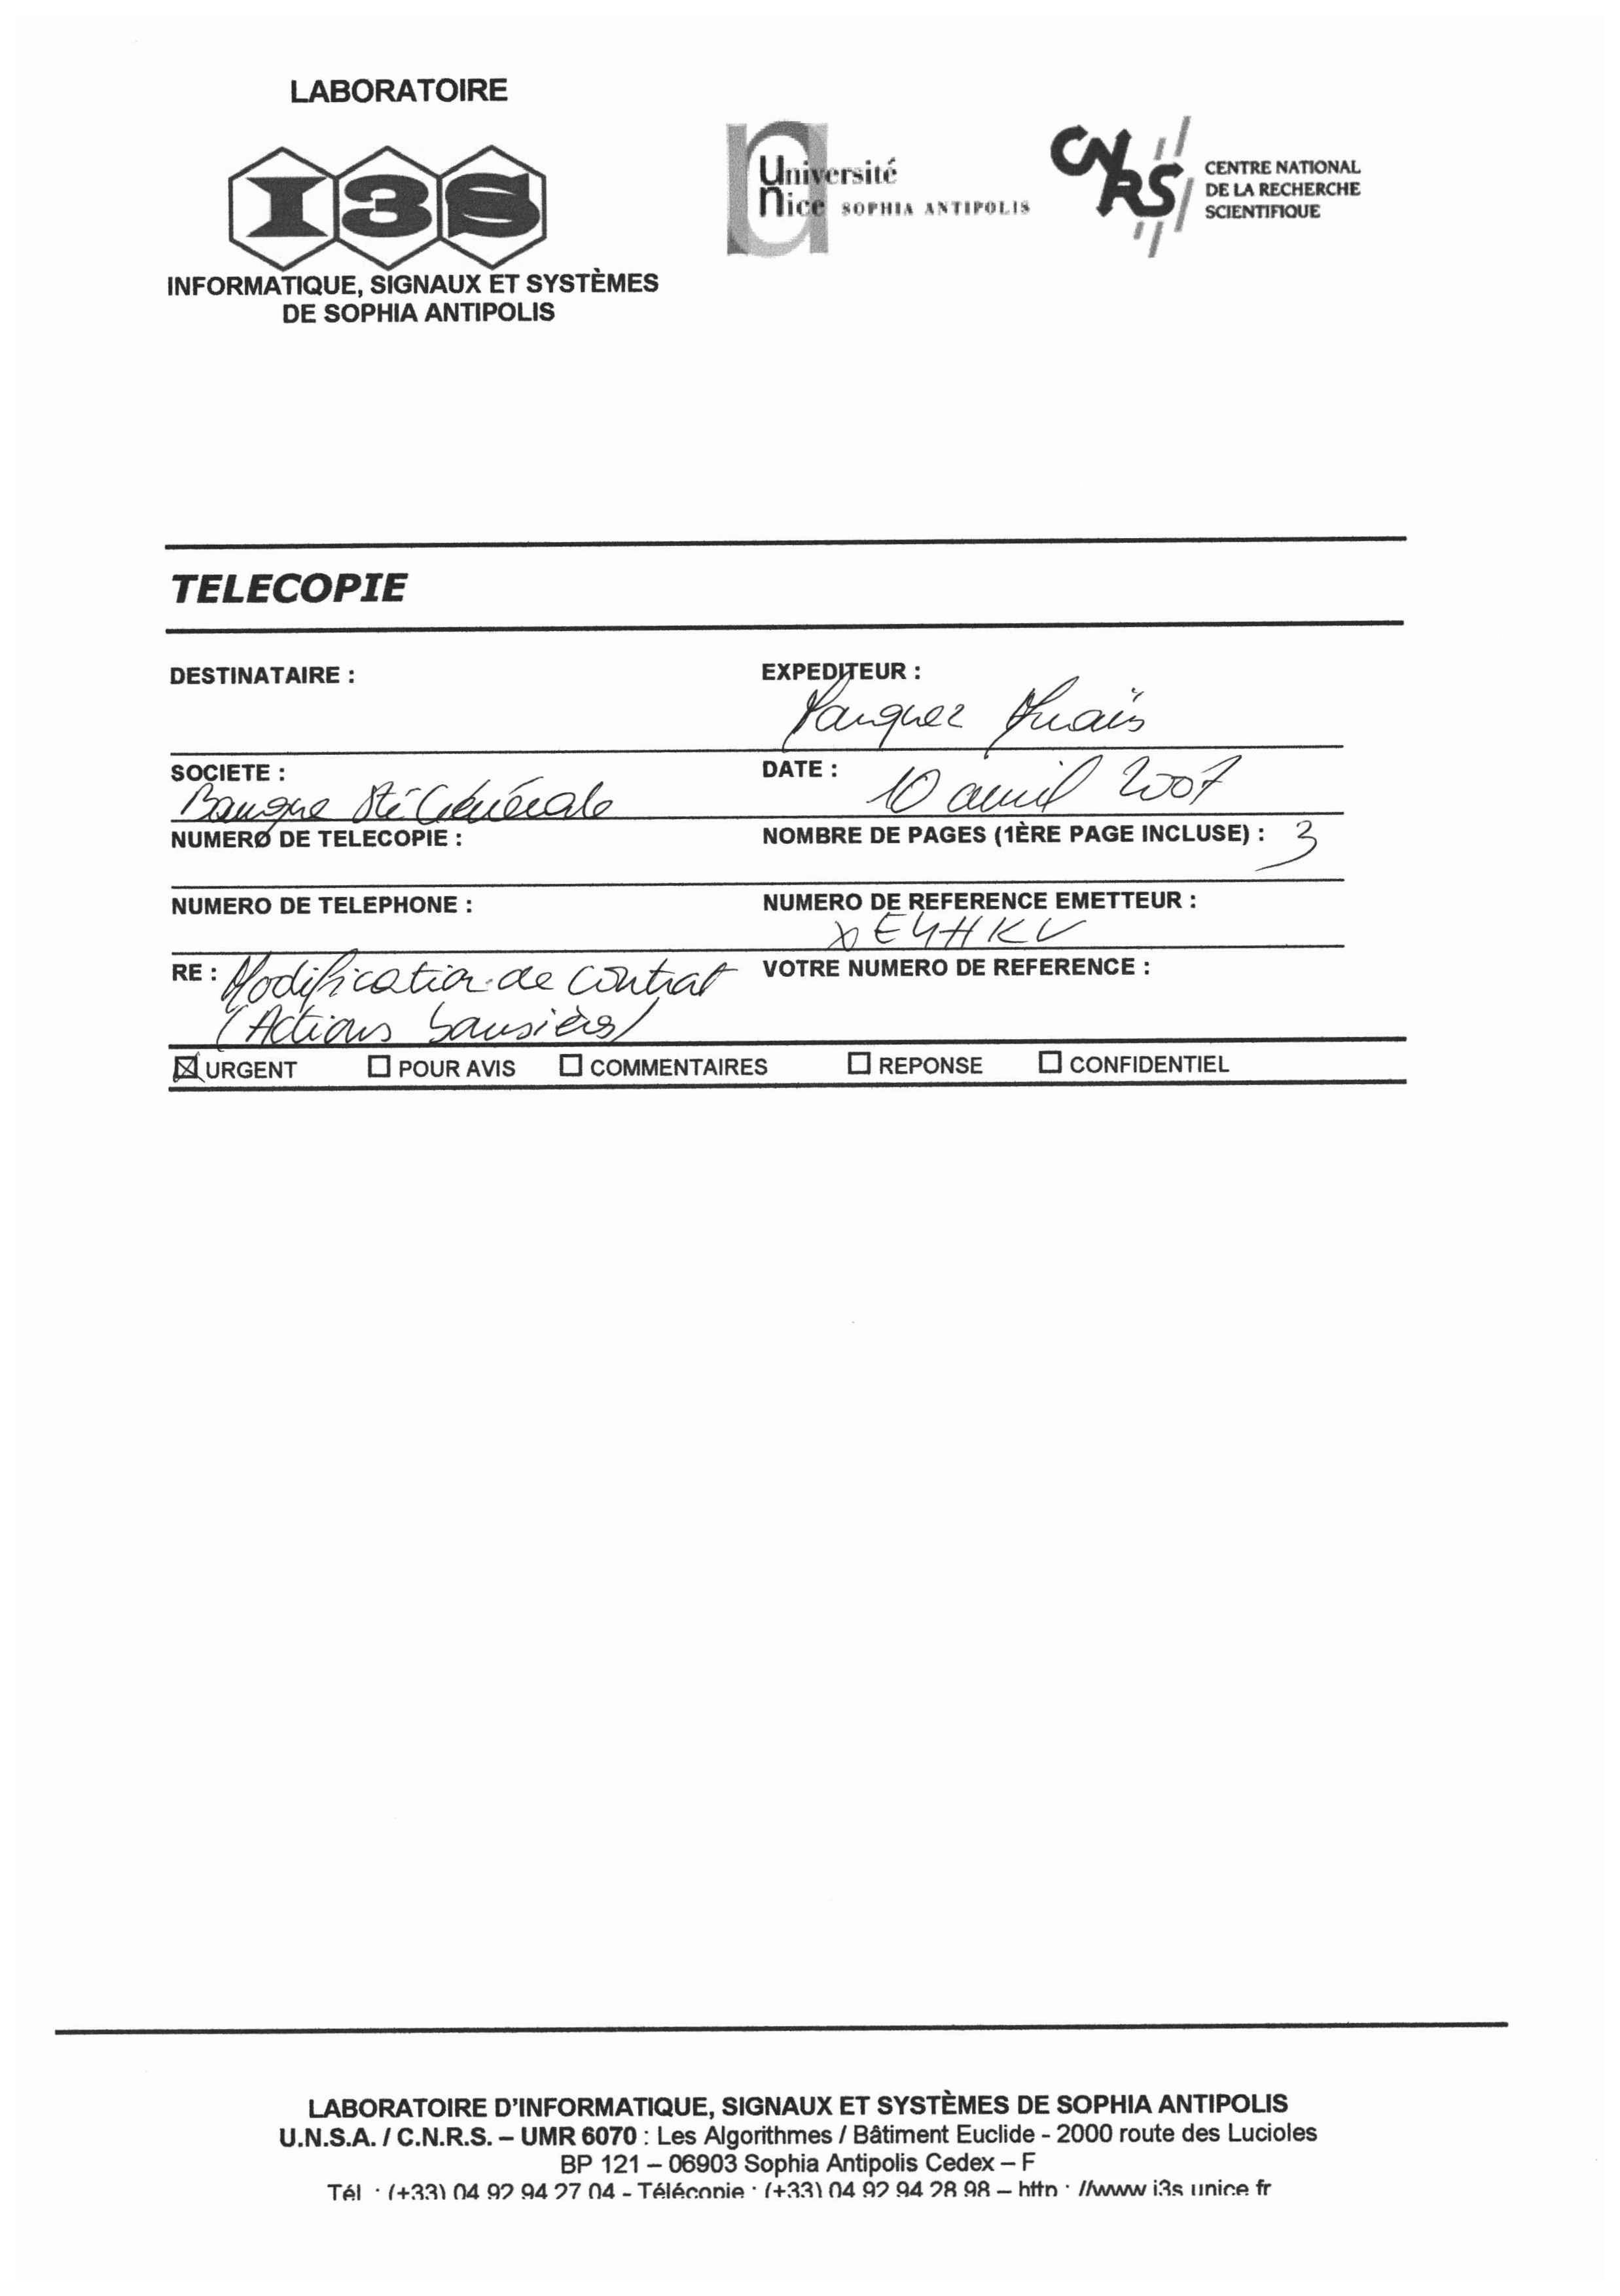 LABORATOIRE
I3S
INFORMATIQUE, SIGNAUX ET SYSTÈMES
DE SOPHIA ANTIPOLIS
Université
Nice SOPHIA ANTIPOLIS
CNRS
CENTRE NATIONAL
DE LA RECHERCHE
SCIENTIFIQUE
TELECOPIE
DESTINATAIRE :
EXPEDITEUR :
Anaïs
SOCIETE :
Banque Sté Générale
DATE :
10 avril 2007
NUMERO DE TELECOPIE :
NOMBRE DE PAGES (1ÈRE PAGE INCLUSE) : 3
NUMERO DE TELEPHONE :
NUMERO DE REFERENCE EMETTEUR :
XE4HKV
RE : Modification de contrat
(Actions boursières)
VOTRE NUMERO DE REFERENCE :
☒ URGENT ☐ POUR AVIS ☐ COMMENTAIRES ☐ REPONSE ☐ CONFIDENTIEL
LABORATOIRE D'INFORMATIQUE, SIGNAUX ET SYSTÈMES DE SOPHIA ANTIPOLIS
U.N.S.A. / C.N.R.S. – UMR 6070 : Les Algorithmes / Bâtiment Euclide - 2000 route des Lucioles
BP 121 – 06903 Sophia Antipolis Cedex – F
Tél : (+33) 04 92 94 27 04 - Télécopie : (+33) 04 92 94 28 98 – http : //www i3s unice fr